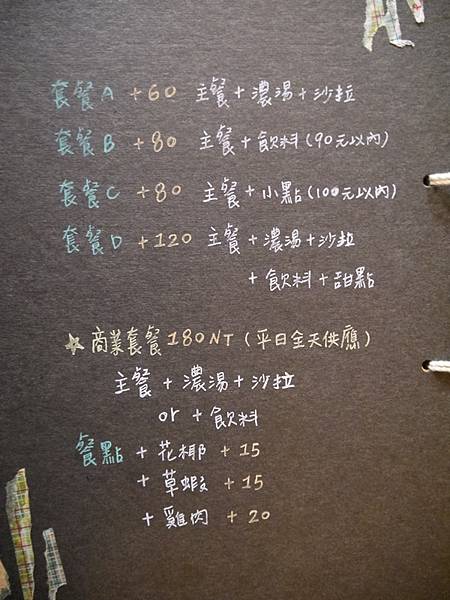 套餐A +60 主餐+濃湯+沙拉
套餐B +80 主餐+飲料(90元以內)
套餐C +80 主餐+小點(100元以內)
套餐D +120 主餐+濃湯+沙拉
+飲料+甜點
☆商業套餐180NT(平日全天供應)
主餐+濃湯+沙拉
or +飲料
餐點 +花椰 +15
+草蝦 +15
+雞肉 +20